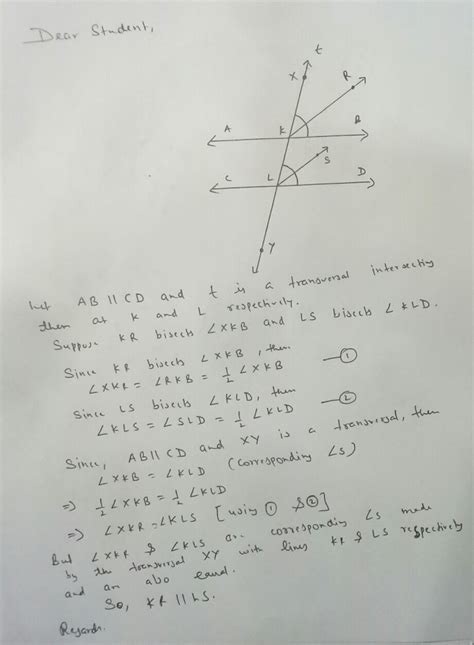 Dear Student,
t
X
R
A
K
B
S
C
L
D
Y
Let AB || CD and t is a transversal intersecting
them at K and L respectively.
Suppose KR bisects ∠XKB and LS bisects ∠KLD.
Since KR bisects ∠XKB, then
∠XKR = ∠RKB = 1/2 ∠XKB —①
Since LS bisects ∠KLD, then
∠KLS = ∠SLD = 1/2 ∠KLD —②
Since, AB || CD and XY is a transversal, then
∠XKB = ∠KLD (corresponding ∠s)
⇒ 1/2 ∠XKB = 1/2 ∠KLD
⇒ ∠XKR = ∠KLS [using ① & ②]
But ∠XKR & ∠KLS are corresponding ∠s made
by the transversal XY with lines KR & LS respectively
and are also equal.
So, KR || LS.
Regards.